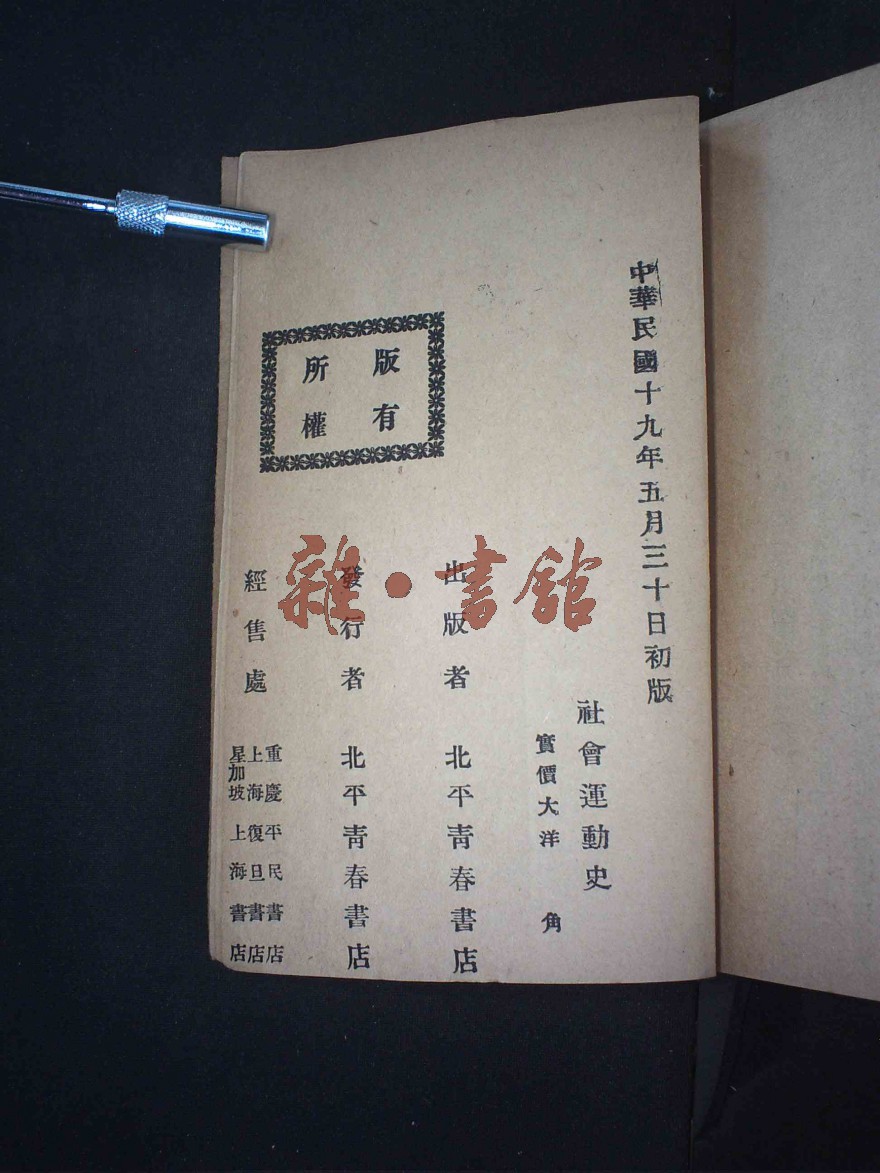 中華民國十九年五月三十日初版
社會運動史
實價大洋 角
出版者 北平青春書店
發行者 北平青春書店
經售處
重慶平民書店
上海復旦書店
星加坡上海書店
版權所有
雜·書館